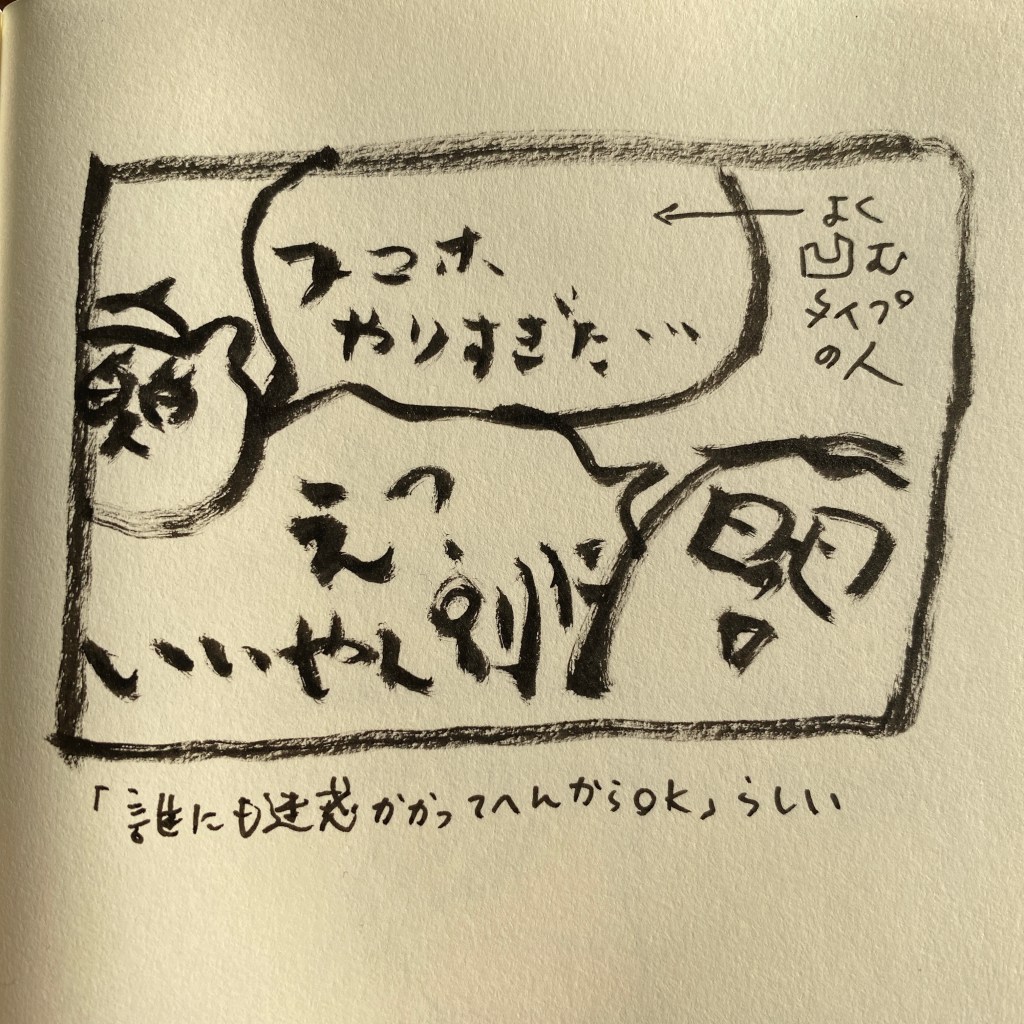 スマホ
やりすぎた…
よく
凹む
タイプ
の人
えっ
別に
いいやん
「誰にも迷惑かかってへんからOK」らしい